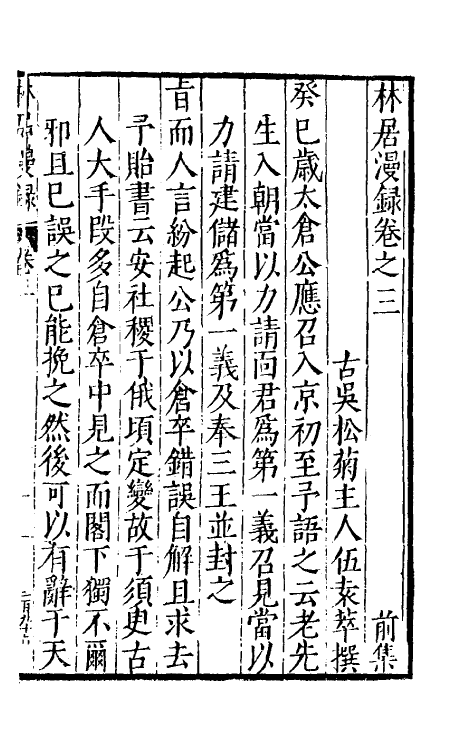 林居漫録卷之三　前集
古吳松菊主人伍袁萃撰
癸巳歲太倉公應召入京初至予語之云老先
生入朝當以力請面君爲第一義召見當以
力請建儲爲第一義及奉三王並封之
旨而人言紛起公乃以倉卒錯誤自解且求去
予貽書云安社稷于俄頃定變故于須臾古
人大手段多自倉卒中見之而閣下獨不爾
邪且已誤之已能挽之然後可以有辭于天
林居漫録
卷三